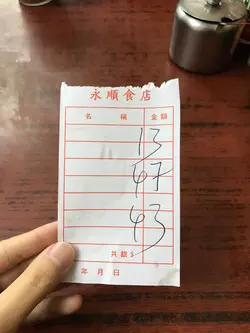 永順食店
名 稱 金額
13
47
43
共銀$
年 月 日